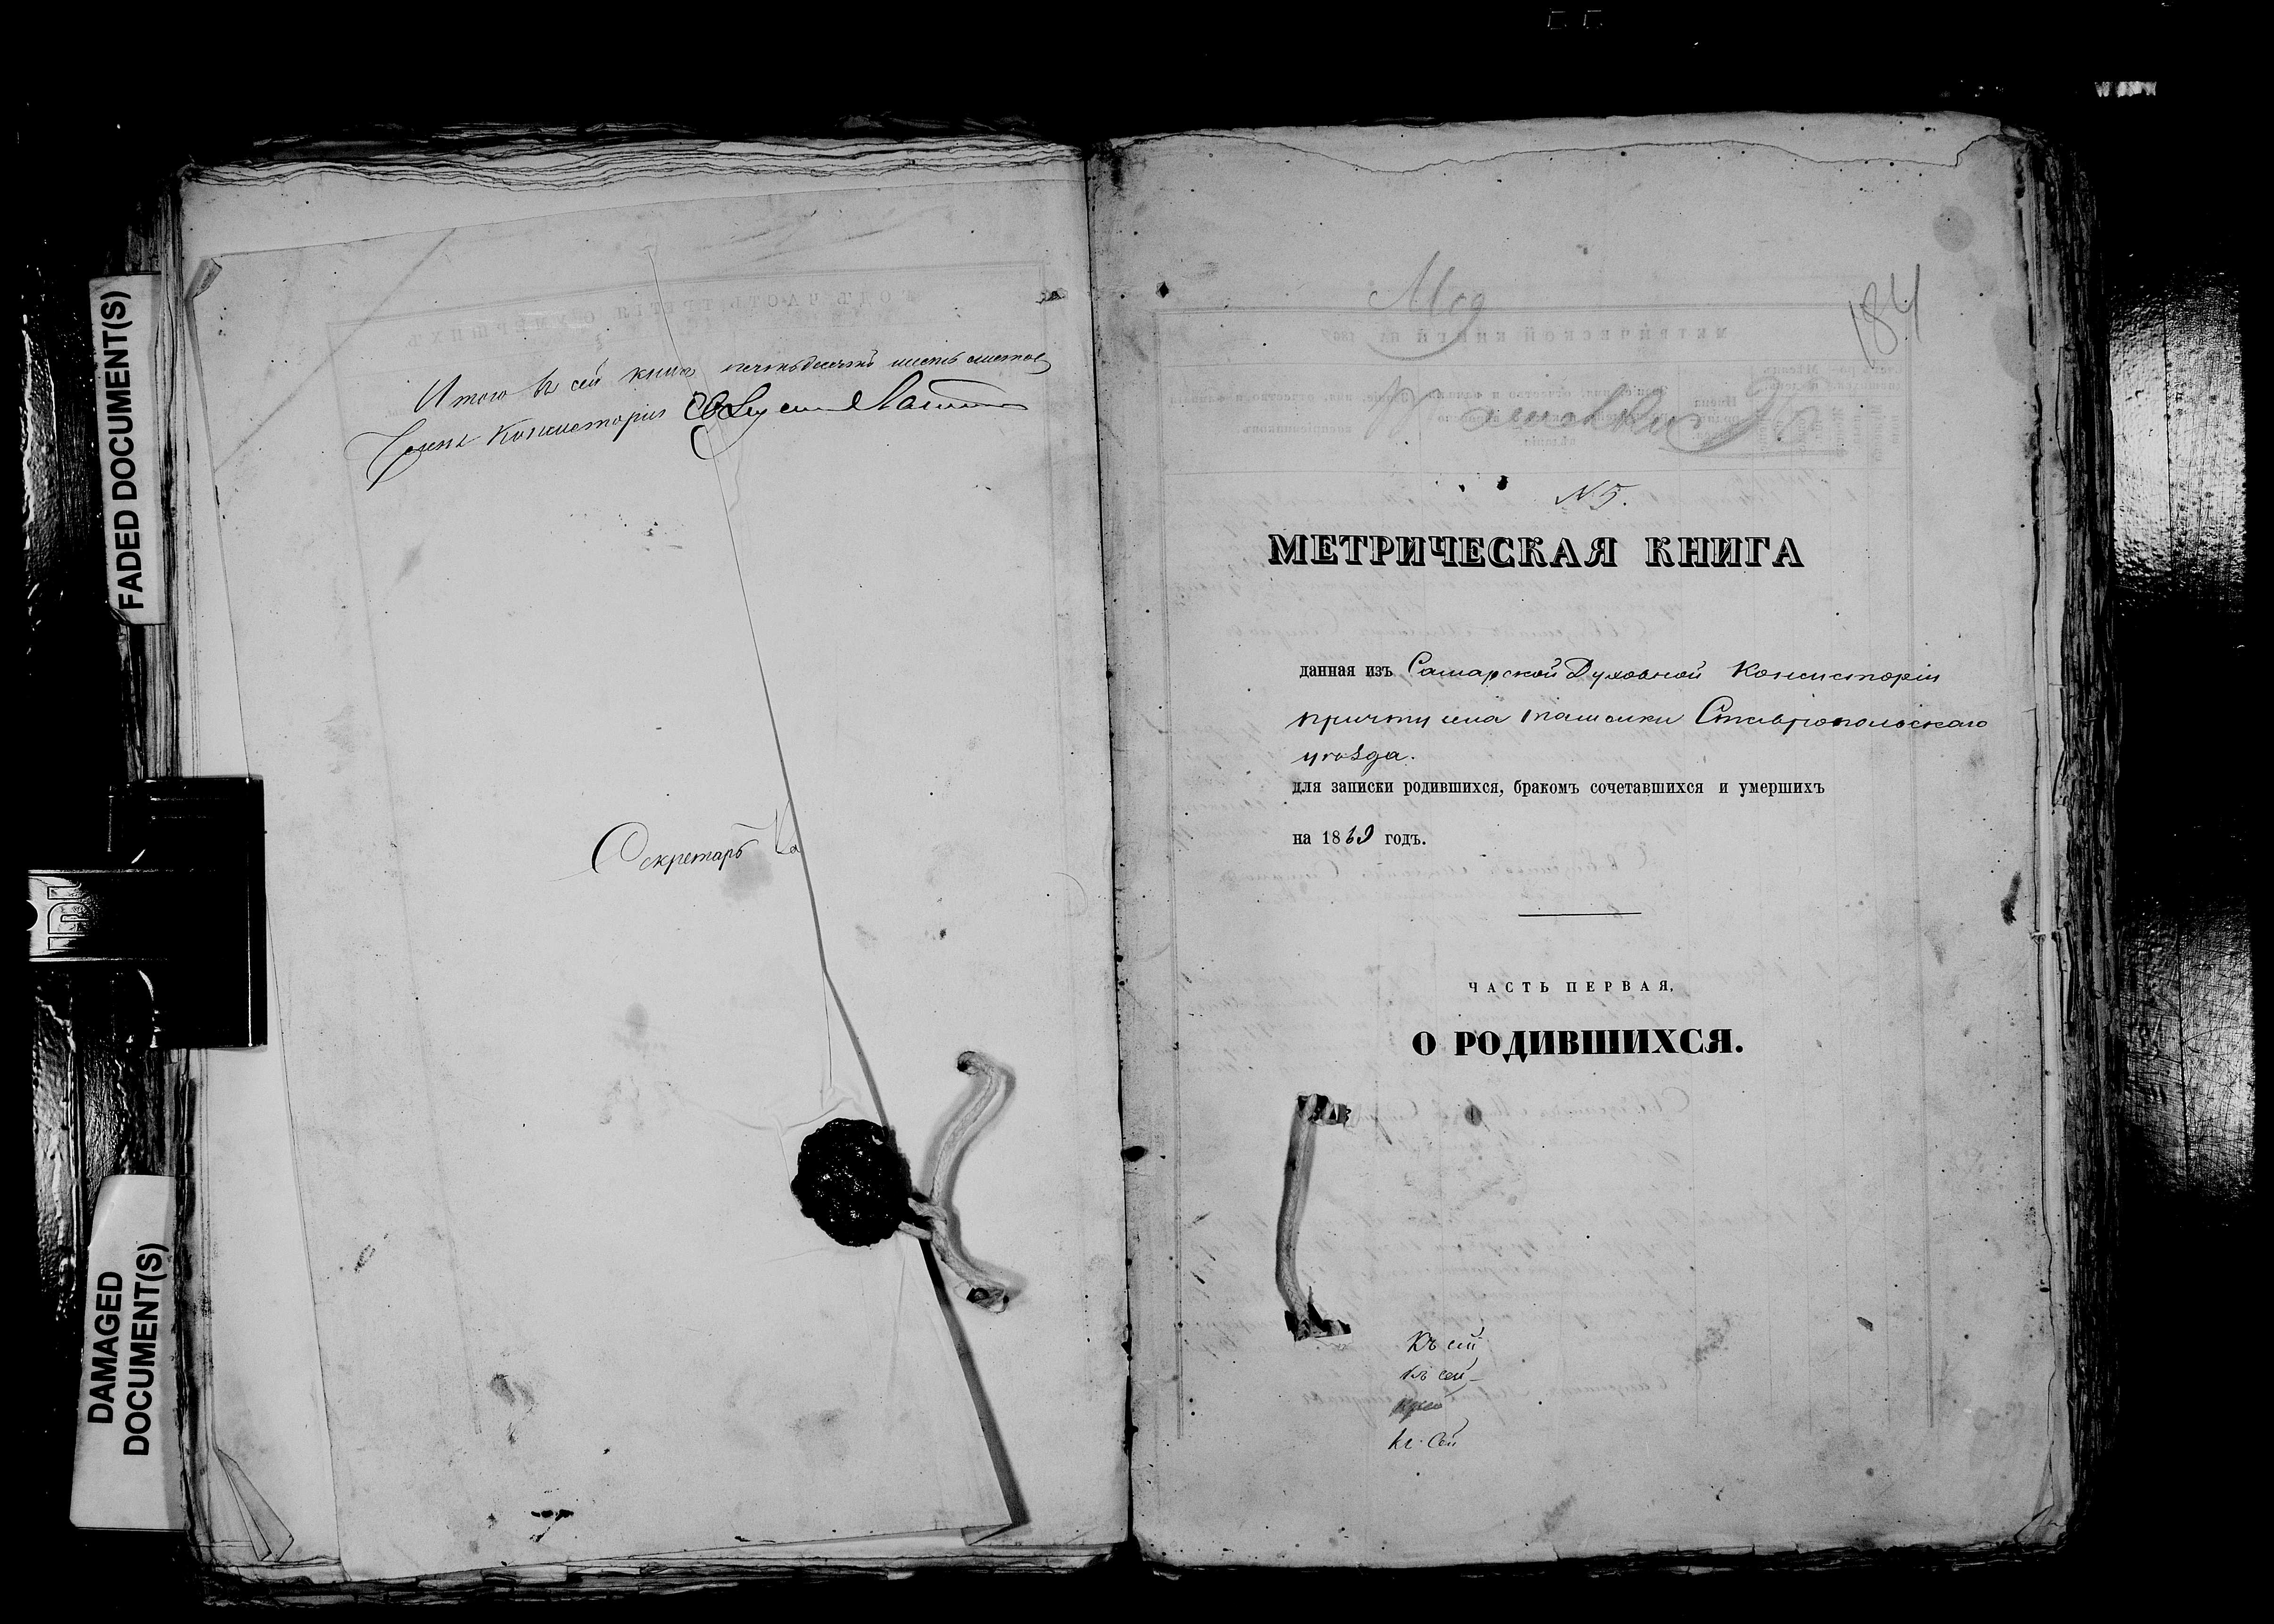 FADED DOCUMENT(S)
DAMAGED
DOCUMENT(S)
Итого въ сей книгѣ пятьдесятъ шесть листовъ
Членъ Консисторіи
Секретарь
184
Ташелки
№ 5.
МЕТРИЧЕСКАЯ КНИГА
данная изъ Самарской Духовной Консисторіи
причту села Ташолки Ставропольскаго
уѣзда.
для записки родившихся, бракомъ сочетавшихся и умершихъ
на 1869 годъ.
ЧАСТЬ ПЕРВАЯ,
О РОДИВШИХСЯ.
Къ сей
къ сей
къ сей